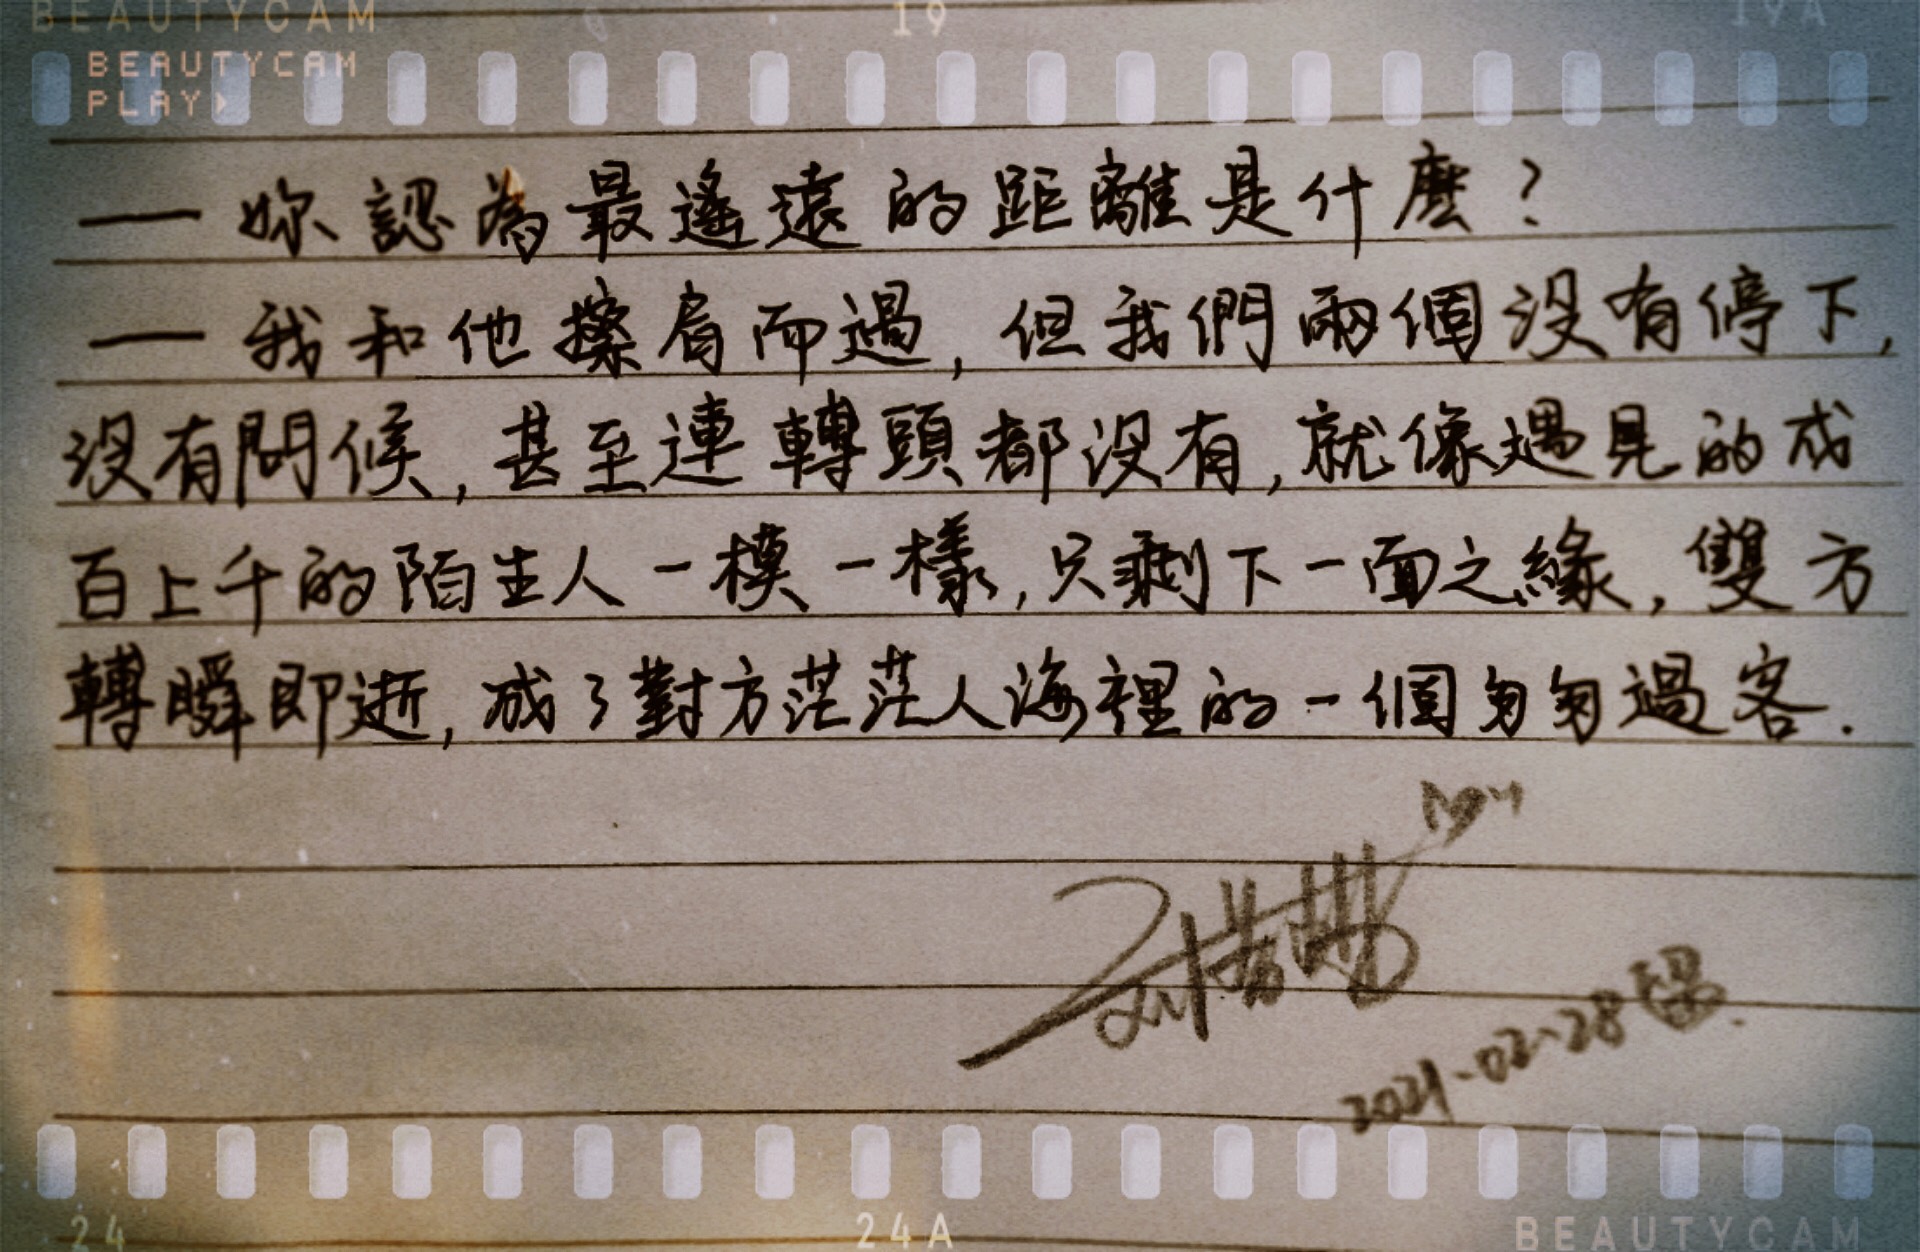 BEAUTYCAM 19 19A
BEAUTYCAM
PLAY
— 妳認為最遙遠的距離是什麼?
— 我和他擦肩而過,但我們兩個沒有停下,
沒有問候,甚至連轉頭都沒有,就像遇見的成
百上千的陌生人一模一樣,只剩下一面之緣,雙方
轉瞬即逝,成了對方茫茫人海裡的一個匆匆過客.
2021-02-28
24 24A BEAUTYCAM